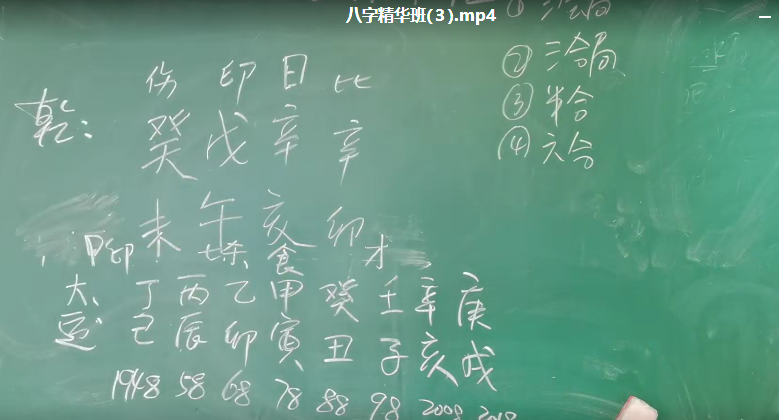 八字精华班(3).mp4
① 三会局
② 三合局
③ 半合
④ 六合
伤 印 日 比
乾：癸 戊 辛 辛
未 午 亥 卯
印 杀 食 才
大运：丁 丙 乙 甲 癸 壬 辛 庚
巳 辰 卯 寅 丑 子 亥 戌
1948 58 68 78 88 98 2008 2018